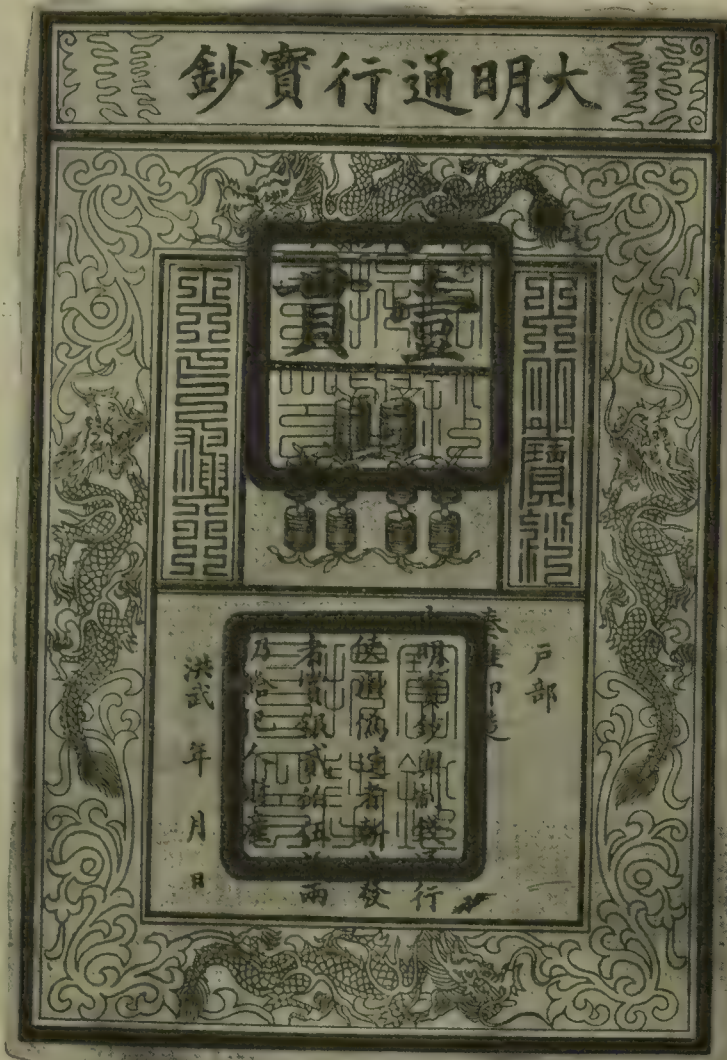 大明通行寶鈔
壹貫
大明寶鈔
戶部
奏准印造
大明寶鈔與銅錢通行
使用偽造者斬告發
者賞銀貳伯伍拾兩
仍給犯人財產
洪武 年 月 日